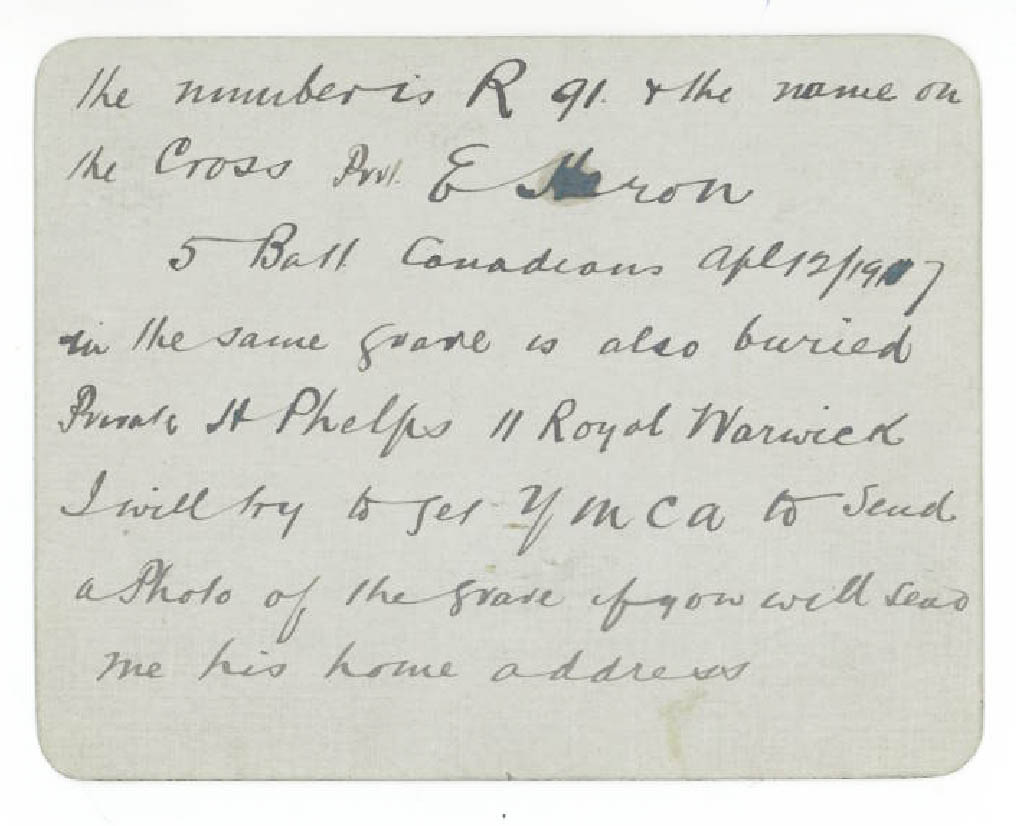 the number is R 91. & the name on
the Cross Prvt. E Heron
5 Batt Canadians Apl 12/1917
in the same grave is also buried
Private H Phelps 11 Royal Warwick
I will try to get Y M C A to send
a Photo of the grave if you will send
me his home address